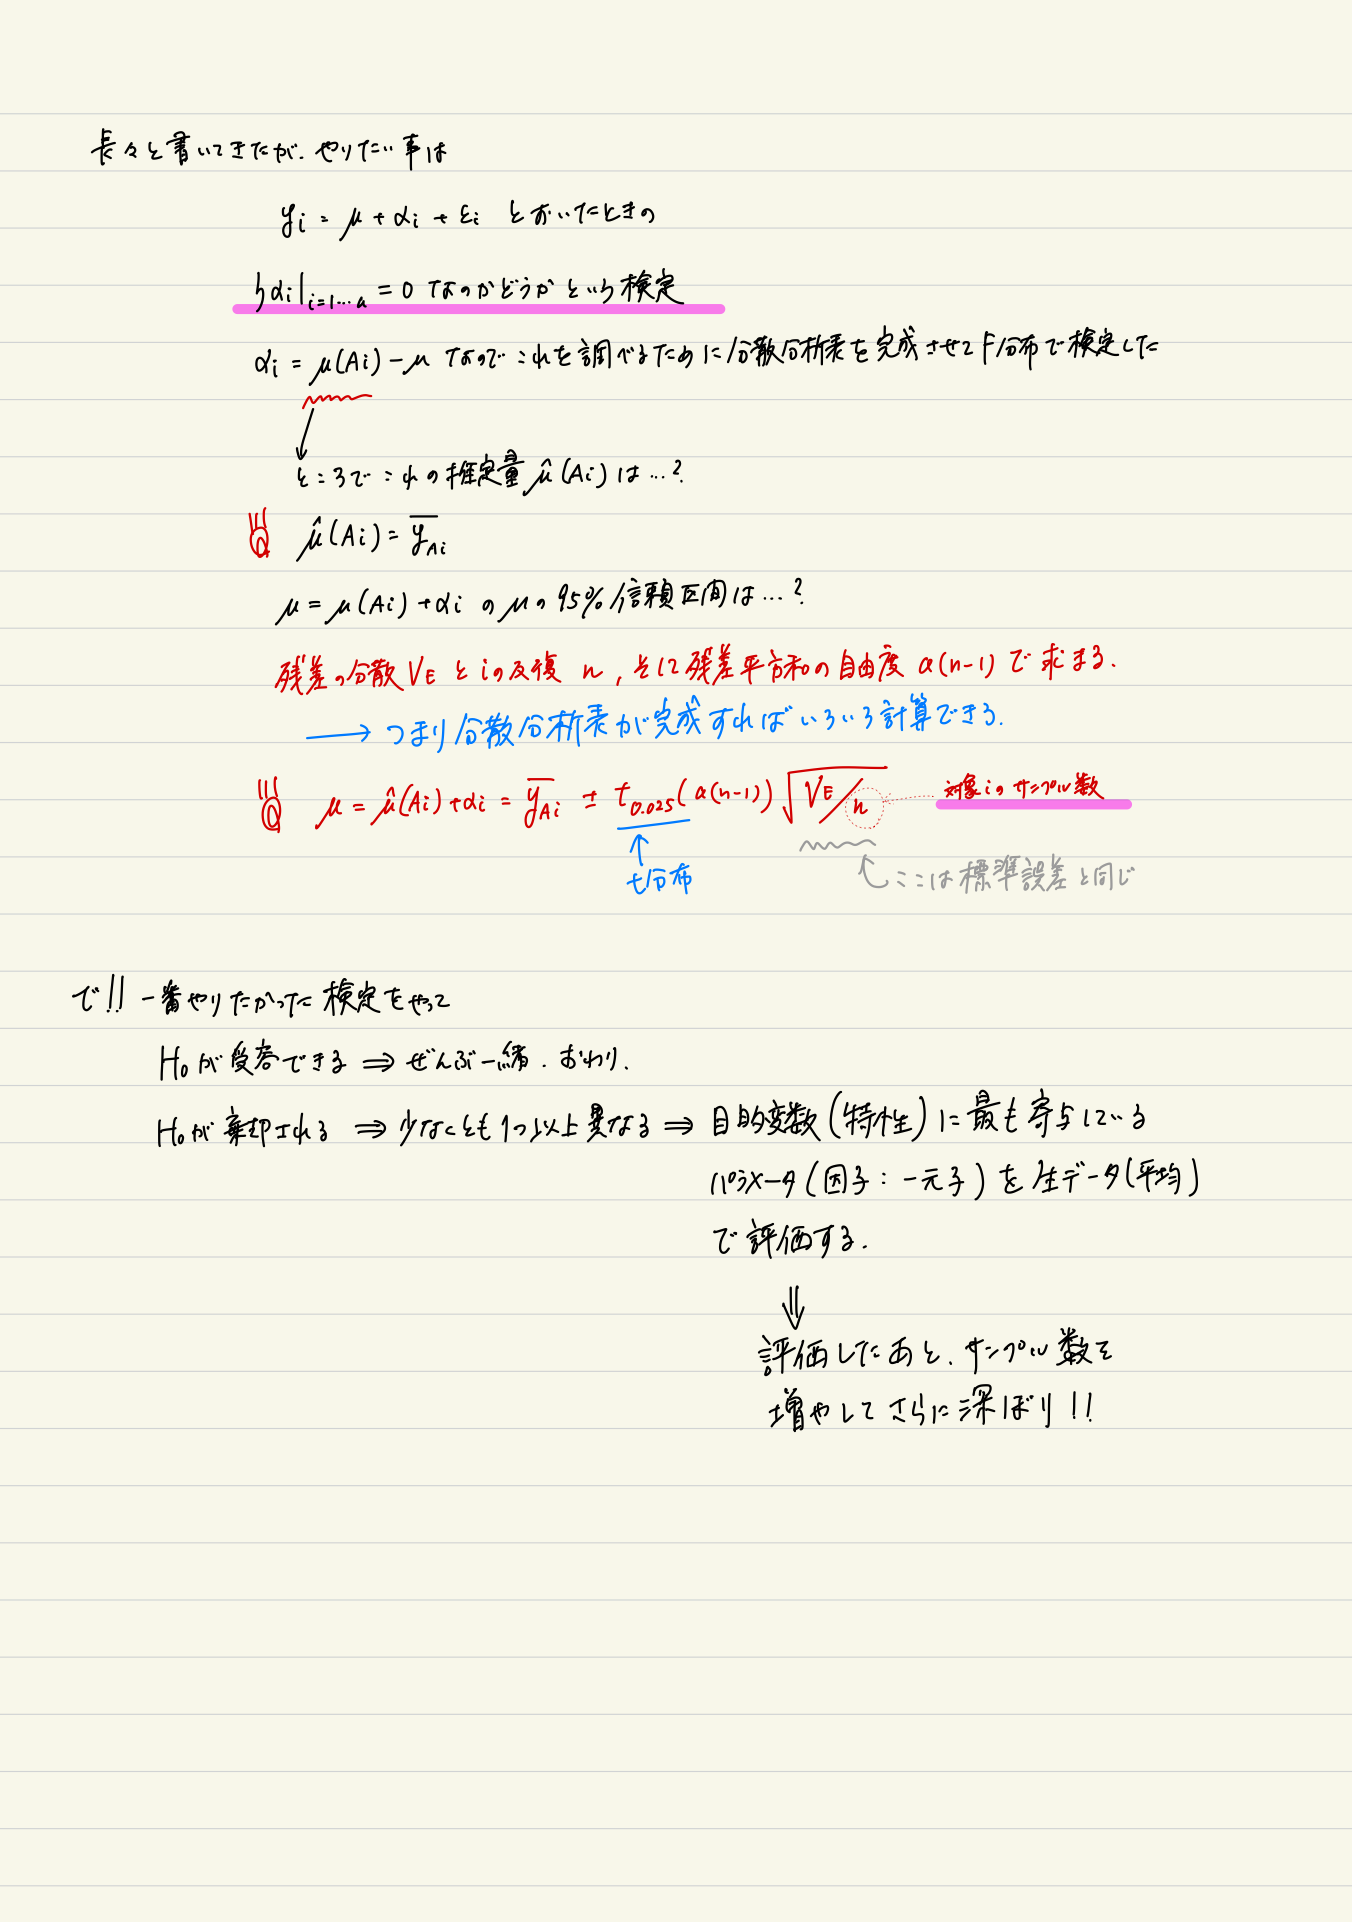 長々と書いてきたが、やりたい事は
yi = μ + αi + εi とおいたときの
αi|i=1…a = 0 なのかどうかという検定
αi = μ(Ai) - μ なので これを調べるために分散分析表を完成させてF分布で検定した
ところでこれの推定量 μ̂(Ai) は…?
μ̂(Ai) = y̅Ai
μ = μ(Ai) + αi の μの 95% 信頼区間は…?
残差の分散 VE と iの反復 n, そして残差平方和の自由度 a(n-1) で求まる.
→ つまり分散分析表が完成すればいろいろ計算できる.
μ = μ̂(Ai) + αi = y̅Ai ± t0.025(a(n-1))√VE/n 対象iのサンプル数
t分布
ここは標準誤差と同じ
で!! 一番やりたかった検定をやって
H0が受容できる ⇒ ぜんぶ一緒. おわり.
H0が棄却される ⇒ 少なくとも1つ以上異なる ⇒ 目的変数(特性)に最も寄与している
パラメータ(因子:一元子)を生データ(平均)
で評価する.
⇓
評価したあと、サンプル数を
増やしてさらに深ぼり!!